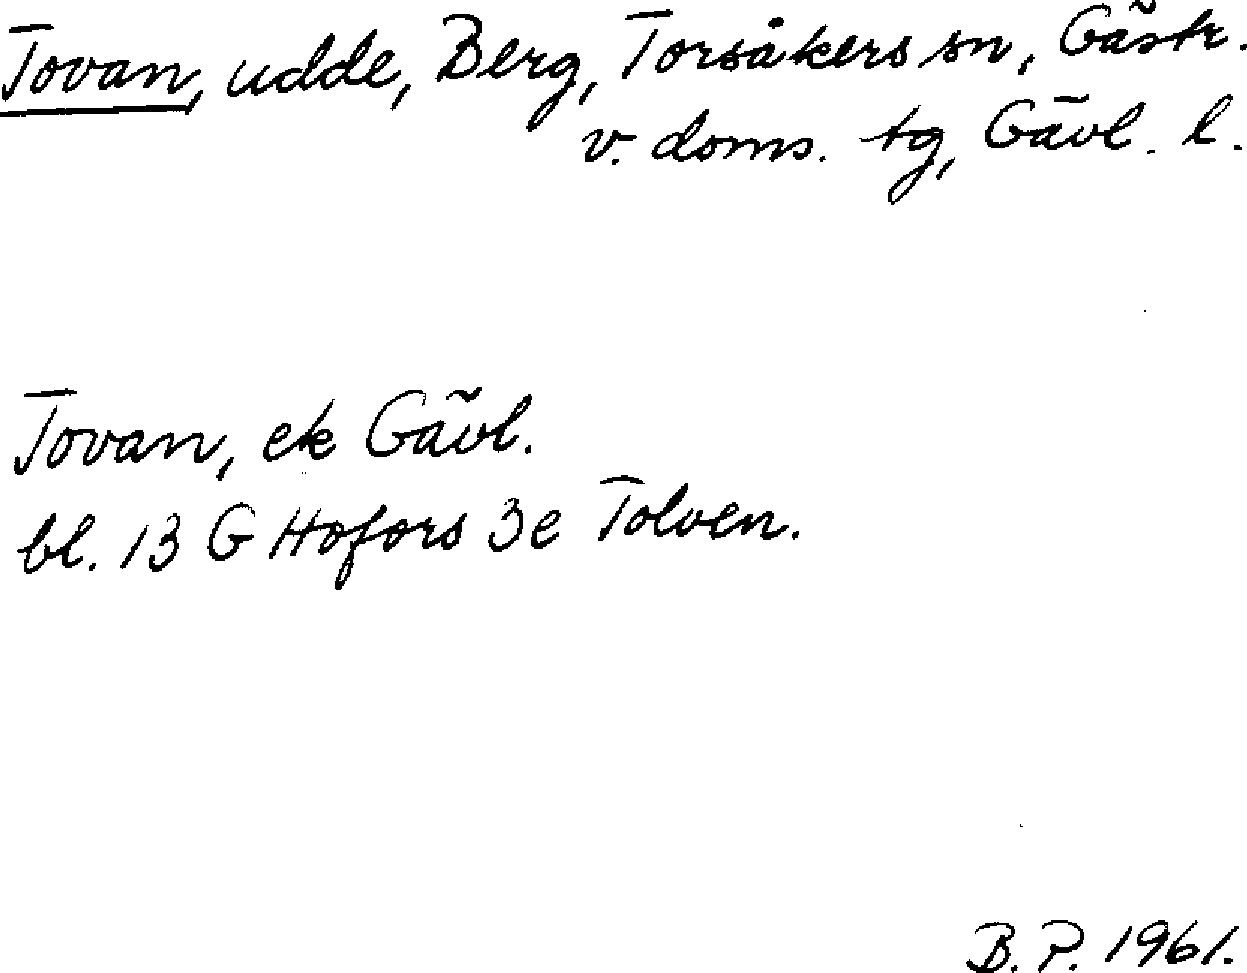 Tovan, udde, Berg, Torsåkers sn, Gästr.
v. doms. tg, Gävl. l.
Tovan, ek Gävl.
bl. 13 G Hofors 3e Tolven.
B. P. 1961.